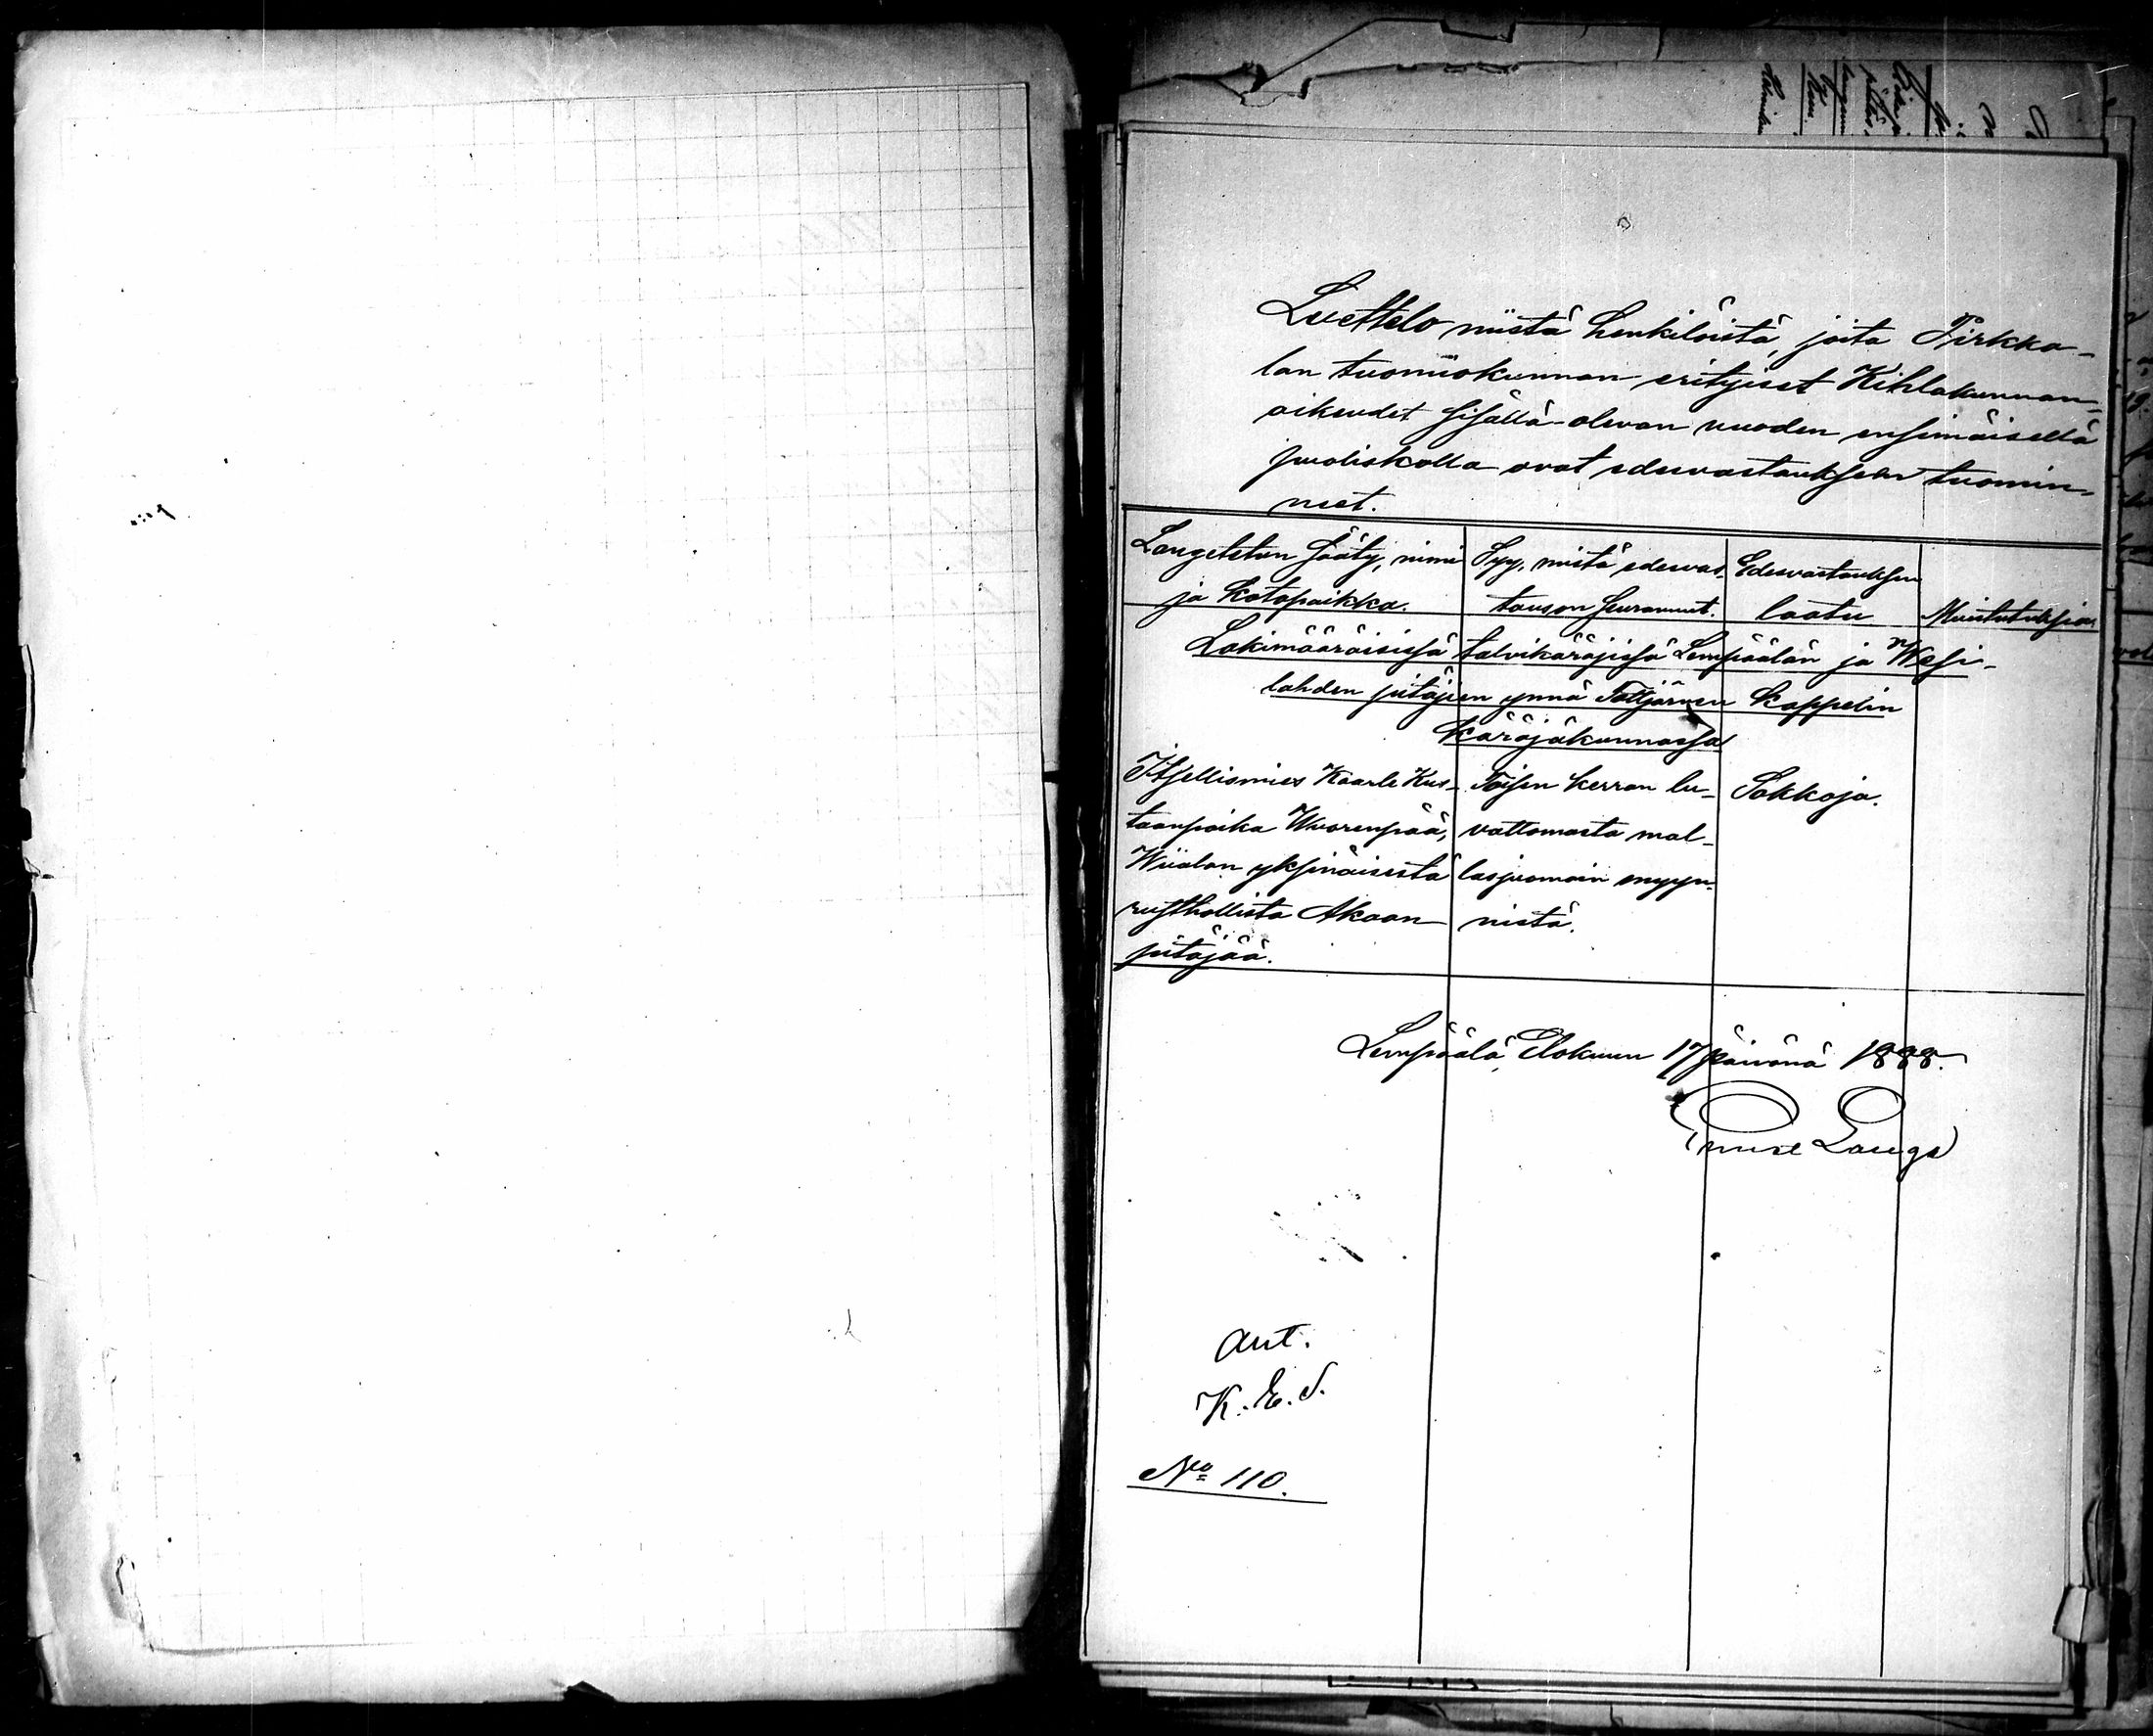 Luettelo niistä henkilöistä, joita Pirkka-
lan tuomiokunnan erityiset Kihlakunnan-
oikeudet sisällä olevan vuoden ensimäisellä
puoliskolla ovat edesvastaukseen tuomin-
neet.
Langetetun sääty, nimi ja kotopaikka.
Syy, mistä edesvas-
taus on seurannut.
Edesvastauksen
laatu
Muistutuksia
Lakimääräisissä talvikäräjissä Lempäälän ja Wesi-
lahden pitäjien ynnä Tottijärven kappelin
käräjäkunnassa
Itsellismies Kaarle Kus-
taanpoika Wuorenpää,
Wiialan yksinäisestä
rusthollista Akaan
pitäjää.
Toisen kerran lu-
vattomasta mal-
lasjuomain myyn-
nistä.
Sakkoja.
Lempäälä, Elokuun 17 päivänä 1888.
Ant.
K. E. S.
No 110.